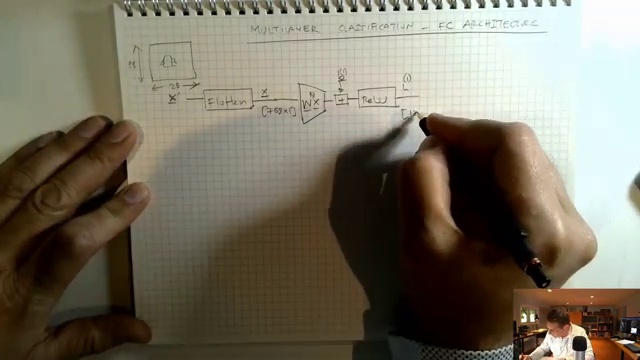 MULTILAYER CLASSIFICATION - FC ARCHITECTURE
28
28
x' Flatten x [768x1] W x + ReLU